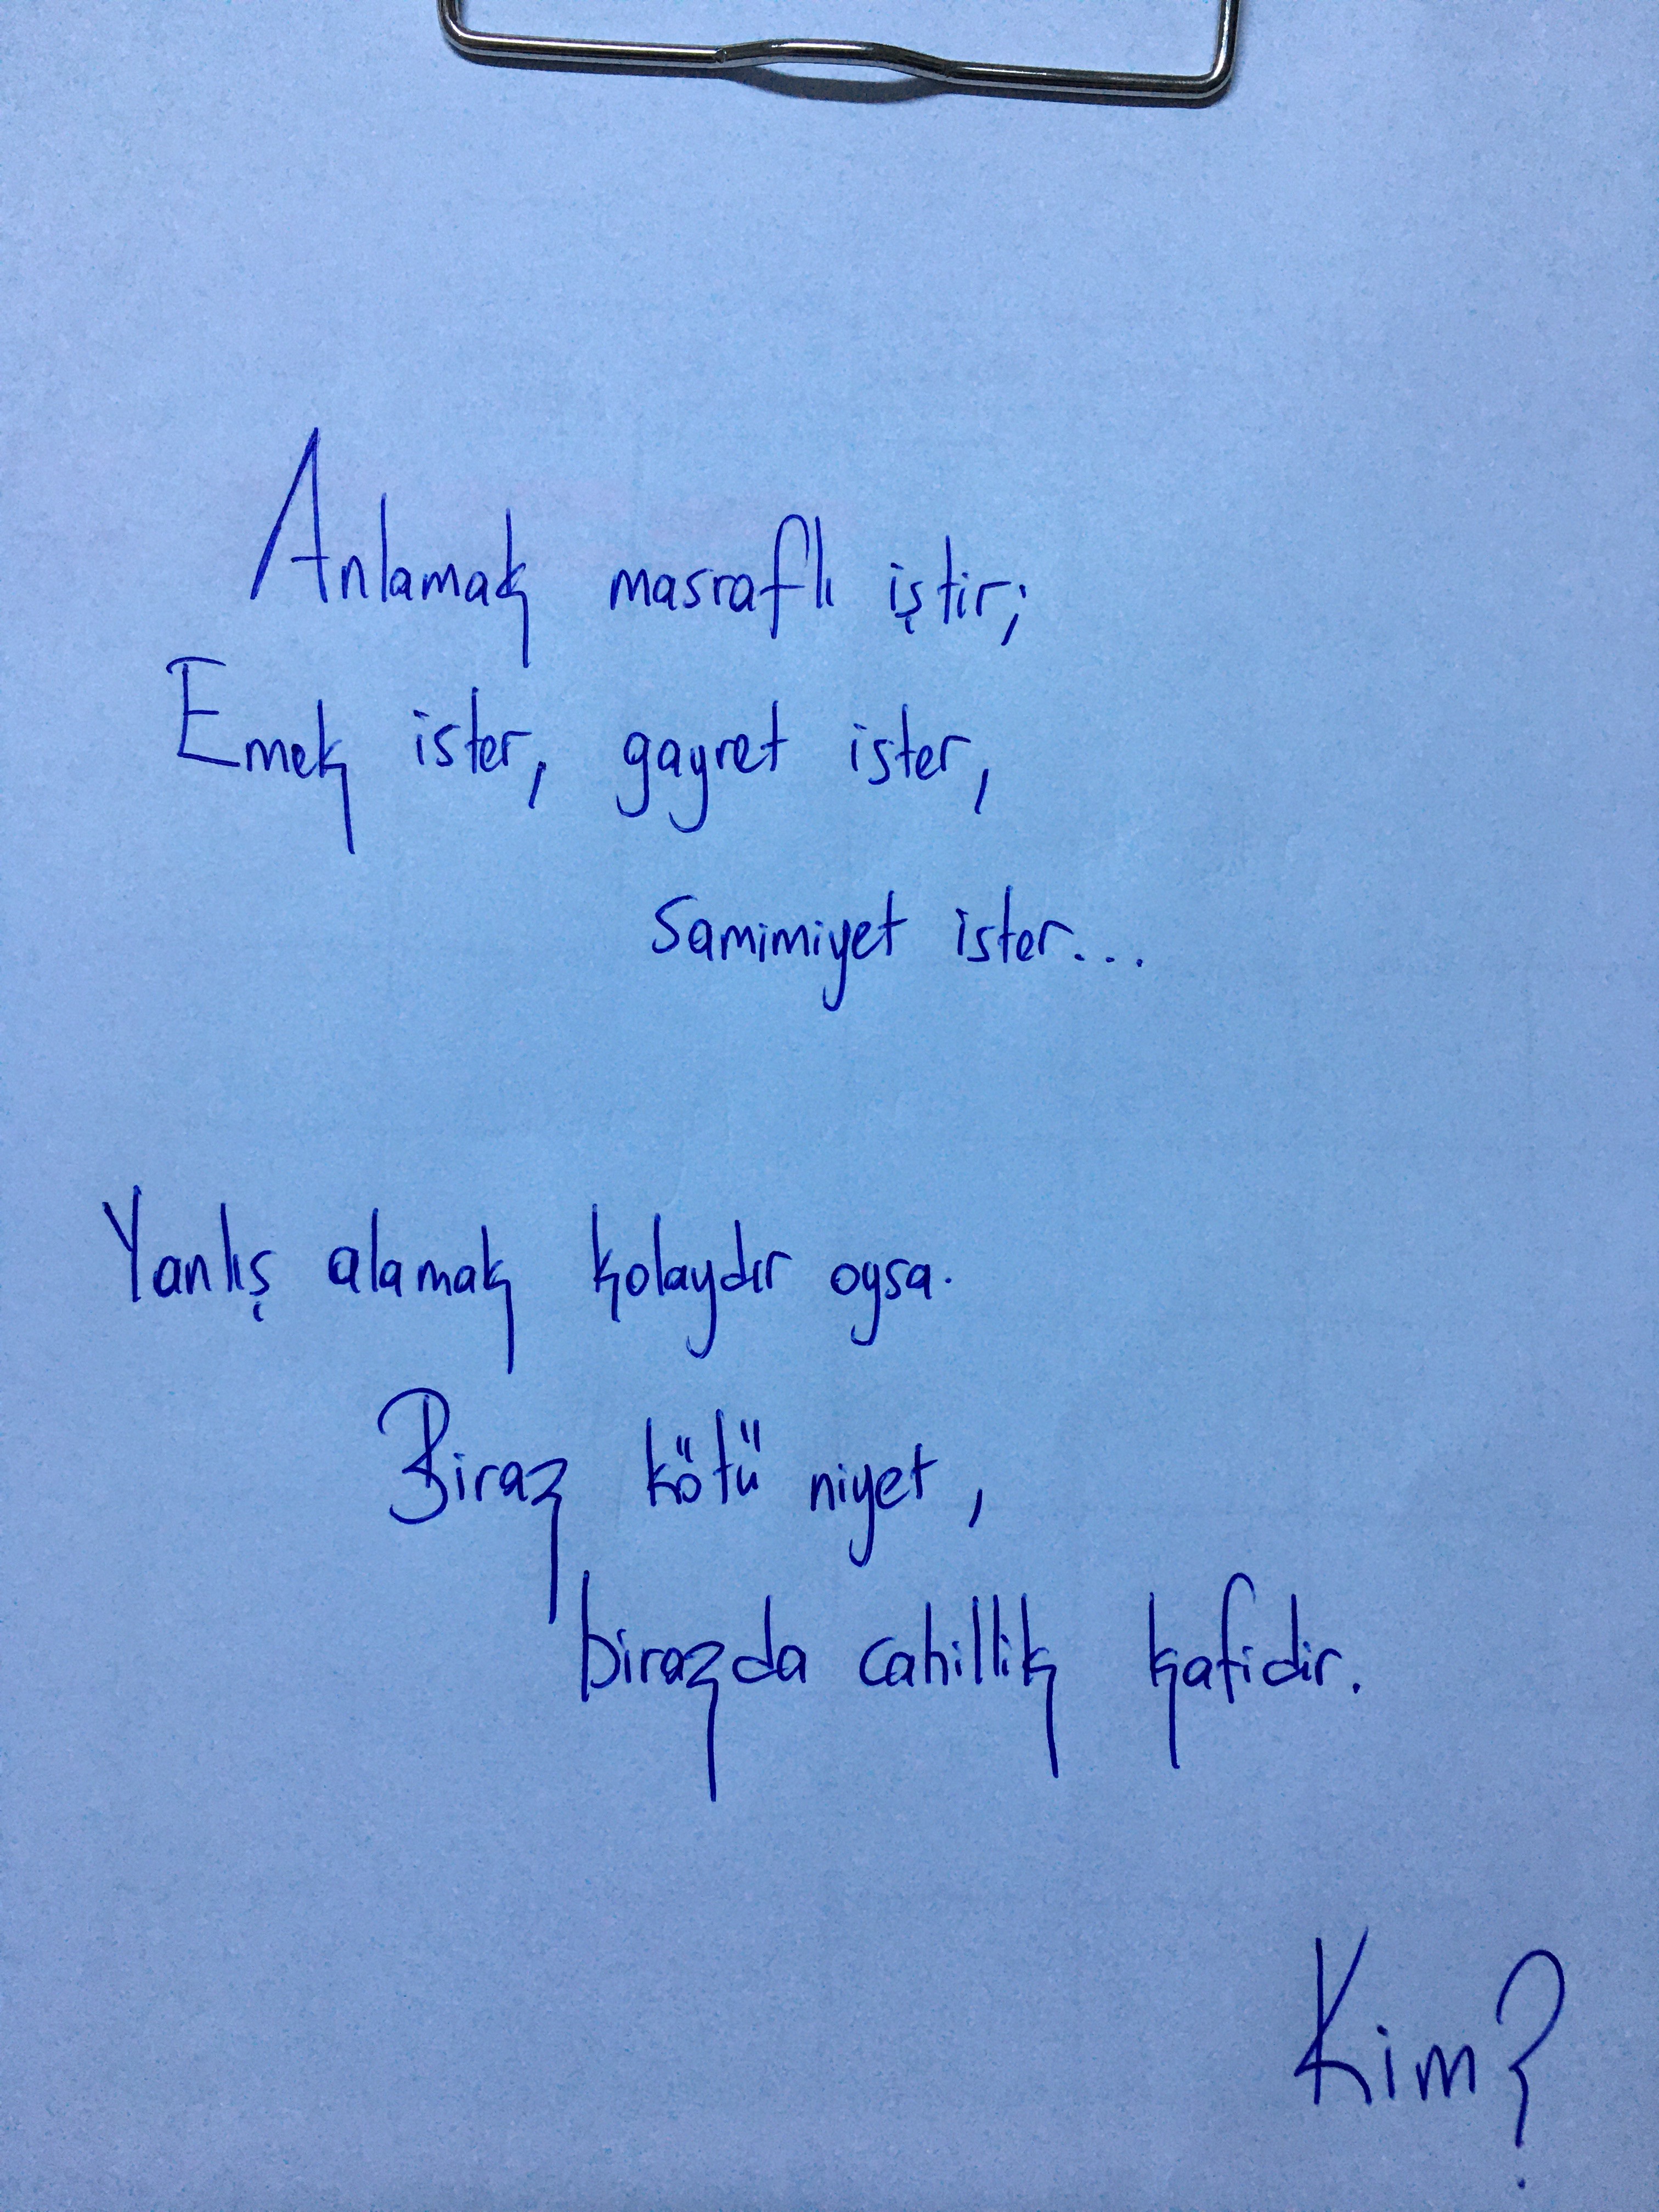 Anlamak masraflı iştir;
Emek ister, gayret ister,
samimiyet ister...
Yanlış alamak kolaydır oysa.
Biraz kötü niyet,
birazda cahillik kafidir.
Kim?